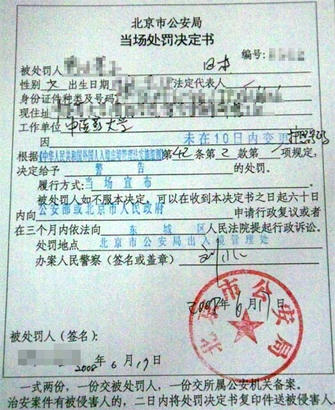 北京市公安局
当场处罚决定书
编号:
被处罚人 日本
性别 女 出生日期 法定代表人
身份证件种类及号码
现住址
工作单位 中医药大学
因 未在10日内变更
根据《中华人民共和国外国人入境出境管理法实施细则》第42条第2款第 项规定,
决定给予 警告 的处罚。
履行方式: 当场宣布
被处罚人如不服本决定,可以在收到本决定书之日起六十日
内向 公安部或北京市人民政府 申请行政复议或者
在三个月内依法向 东城 区人民法院提起行政诉讼。
处罚地点 北京市公安局出入境管理处
办案人民警察(签名或盖章)
2008年6月17日
北京市公安局
被处罚人(签名):
2008年6月17日
一式两份,一份交被处罚人,一份交所属公安机关备案。
治安案件有被侵害人的,二日内将处罚决定书复印件送被侵害人。